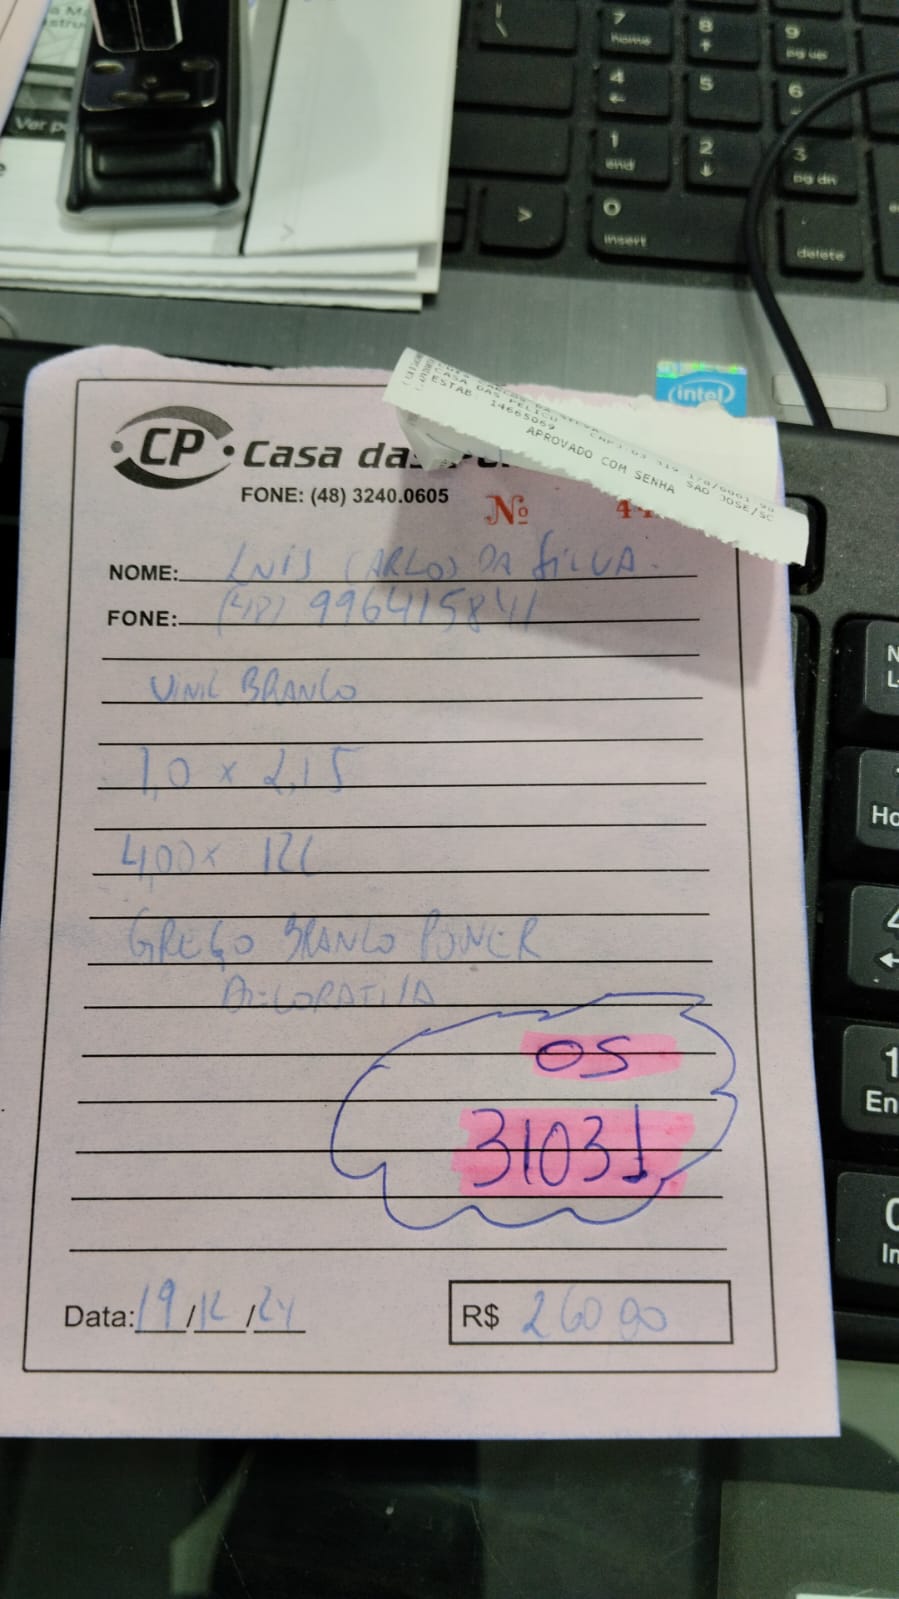 7
home
8
9
pg up
4
5
6
1
end
2
3
pg dn
>
0
insert
.
delete
Ver
intel
CASA DAS
ESTAB 14665069
SAO JOSE/SC
APROVADO COM SENHA
CP Casa das
FONE: (48) 3240.0605
Nº 44
NOME: LUIS CARLOS DA SILVA.
FONE: (48) 996415841
VINIL BRANCO
1,0 x 2,15
4,00 x
BRANCO POWER
DECORATIVA
OS
31031
Data: 19/12/24
R$ 260 00